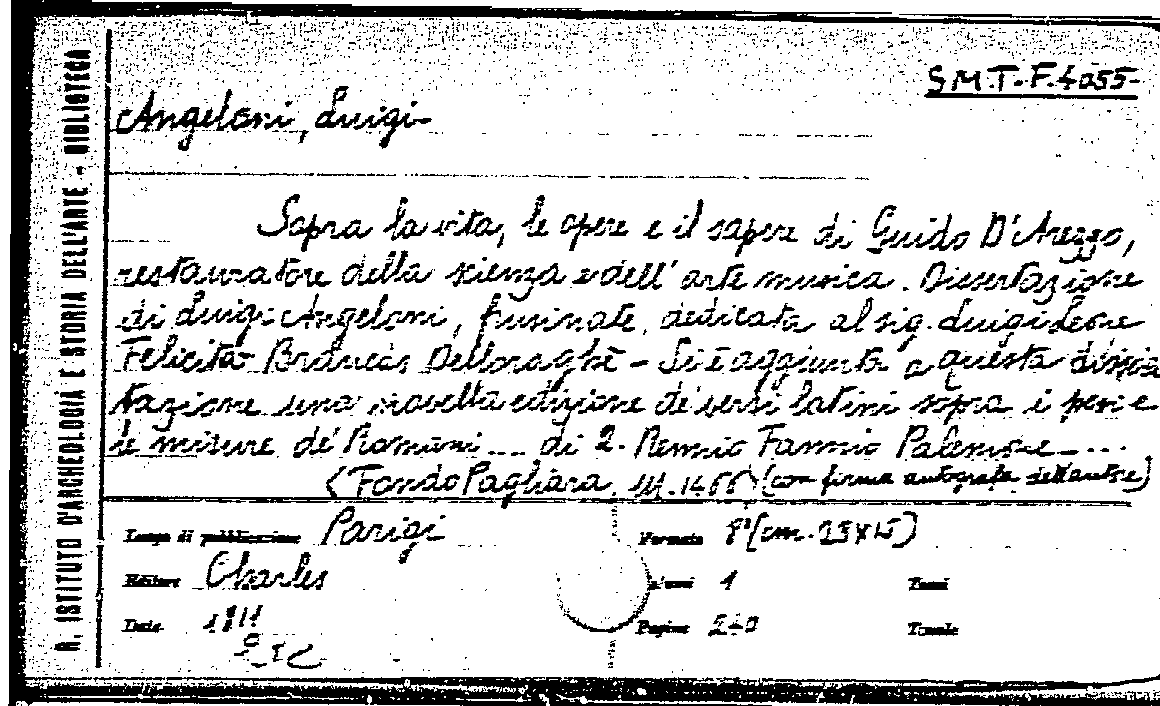 R. ISTITUTO D'ARCHEOLOGIA E STORIA DELL'ARTE - BIBLIOTECA
S.M.T.-F.4055-
Angeloni, Luigi-
Sopra la vita, le opere e il sapere di Guido D'Arezzo,
restauratore della scienza e dell'arte musica. Dissertazione
di Luigi Angeloni, frusinate, dedicata al sig. Luigi Leone
Felicita Brancàs Delloraghè - Si è aggiunta a questa disser
tazione una novella edizione de' versi latini sopra i pesi e
le misure de' Romani ... di 2. Remnio Fannio Palemone ...
(Fondo Pagliara, (con firma autografa dell'autore)
Luogo di pubblicazione Parigi
Formato 8° (cm.
Editore Charles
1
Tomi
Data 1811
Pagine 240
Tavole